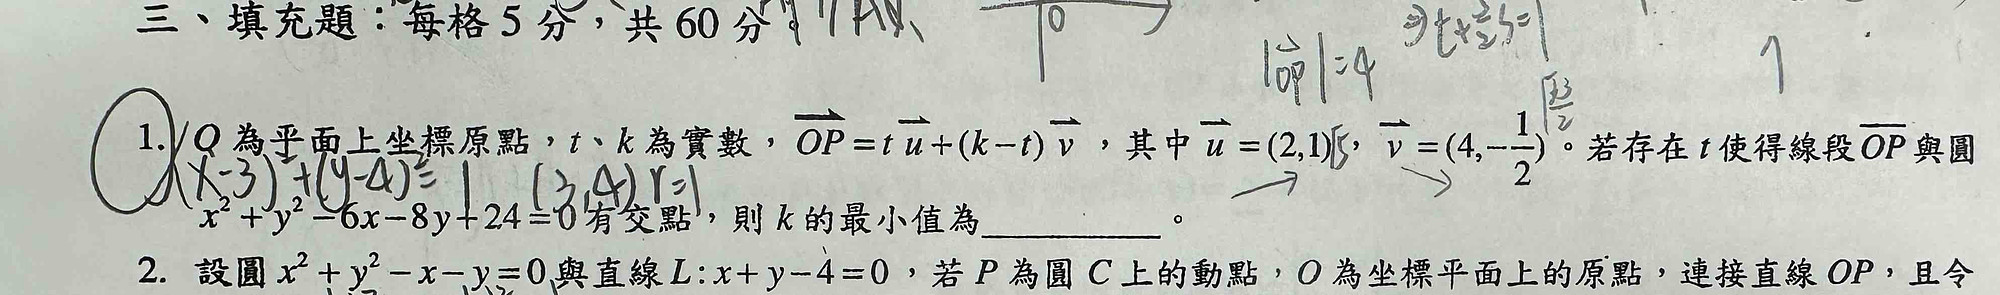 三、填充題：每格 5 分，共 60 分。
|OP|=4
1. O 為平面上坐標原點，t、k 為實數，OP = t u + (k−t) v，其中 u = (2,1)，v = (4,−1/2)。若存在 t 使得線段 OP 與圓
(x-3)²+(y-4)²=1 (3,4) r=1
x² + y² − 6x − 8y + 24 = 0 有交點，則 k 的最小值為________。
2. 設圓 x² + y² − x − y = 0 與直線 L : x + y − 4 = 0，若 P 為圓 C 上的動點，O 為坐標平面上的原點，連接直線 OP，且令